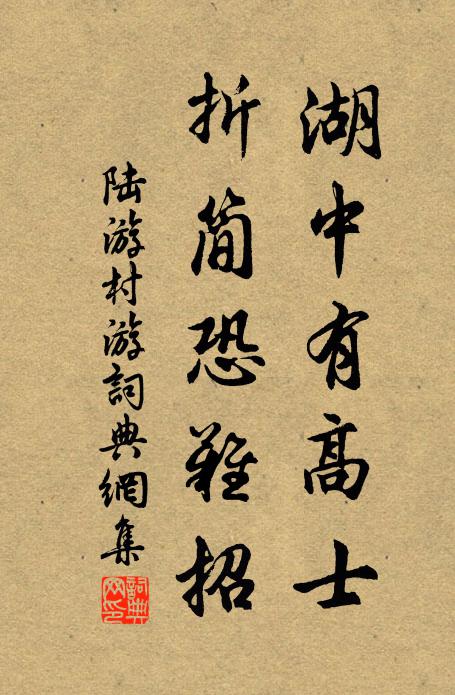 湖中有高士
折简恐難招
陆游村游詞典網集
詞典网印